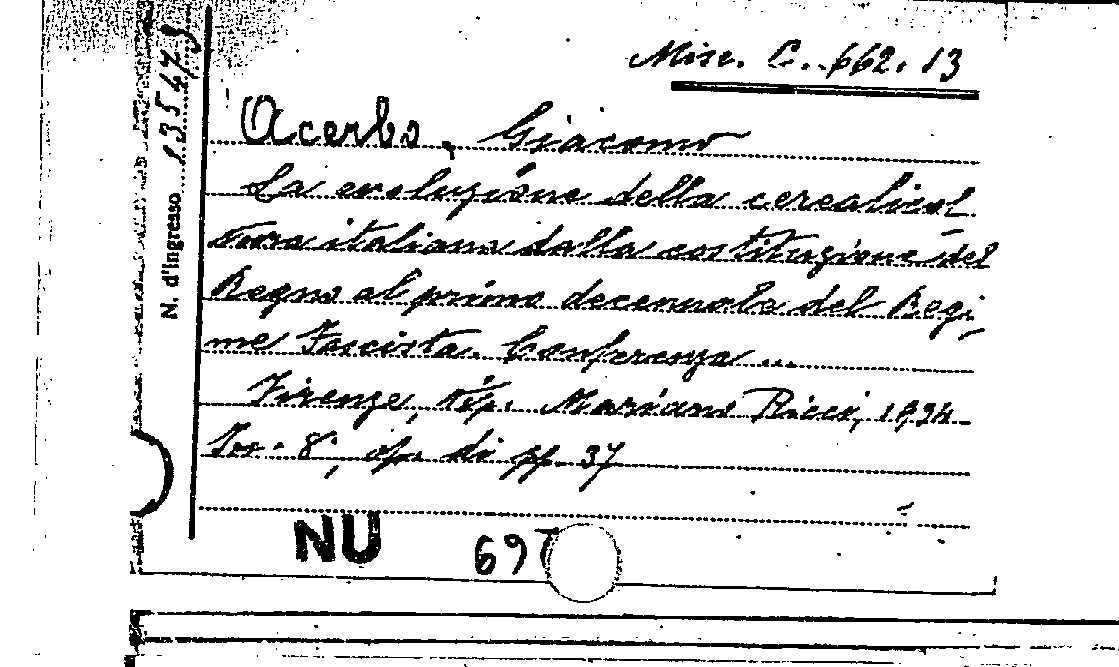 Misc. C. 662. 13
N. d'Ingresso 135473
Acerbo, Giacomo
La evoluzione della cerealicol
tura italiana dalla costituzione del
Regno al primo decennale del Regi
me Fascista. Conferenza ...
Firenze, tip. Mariano Ricci, 1934
In-8°, op. di pp. 37
NU 697